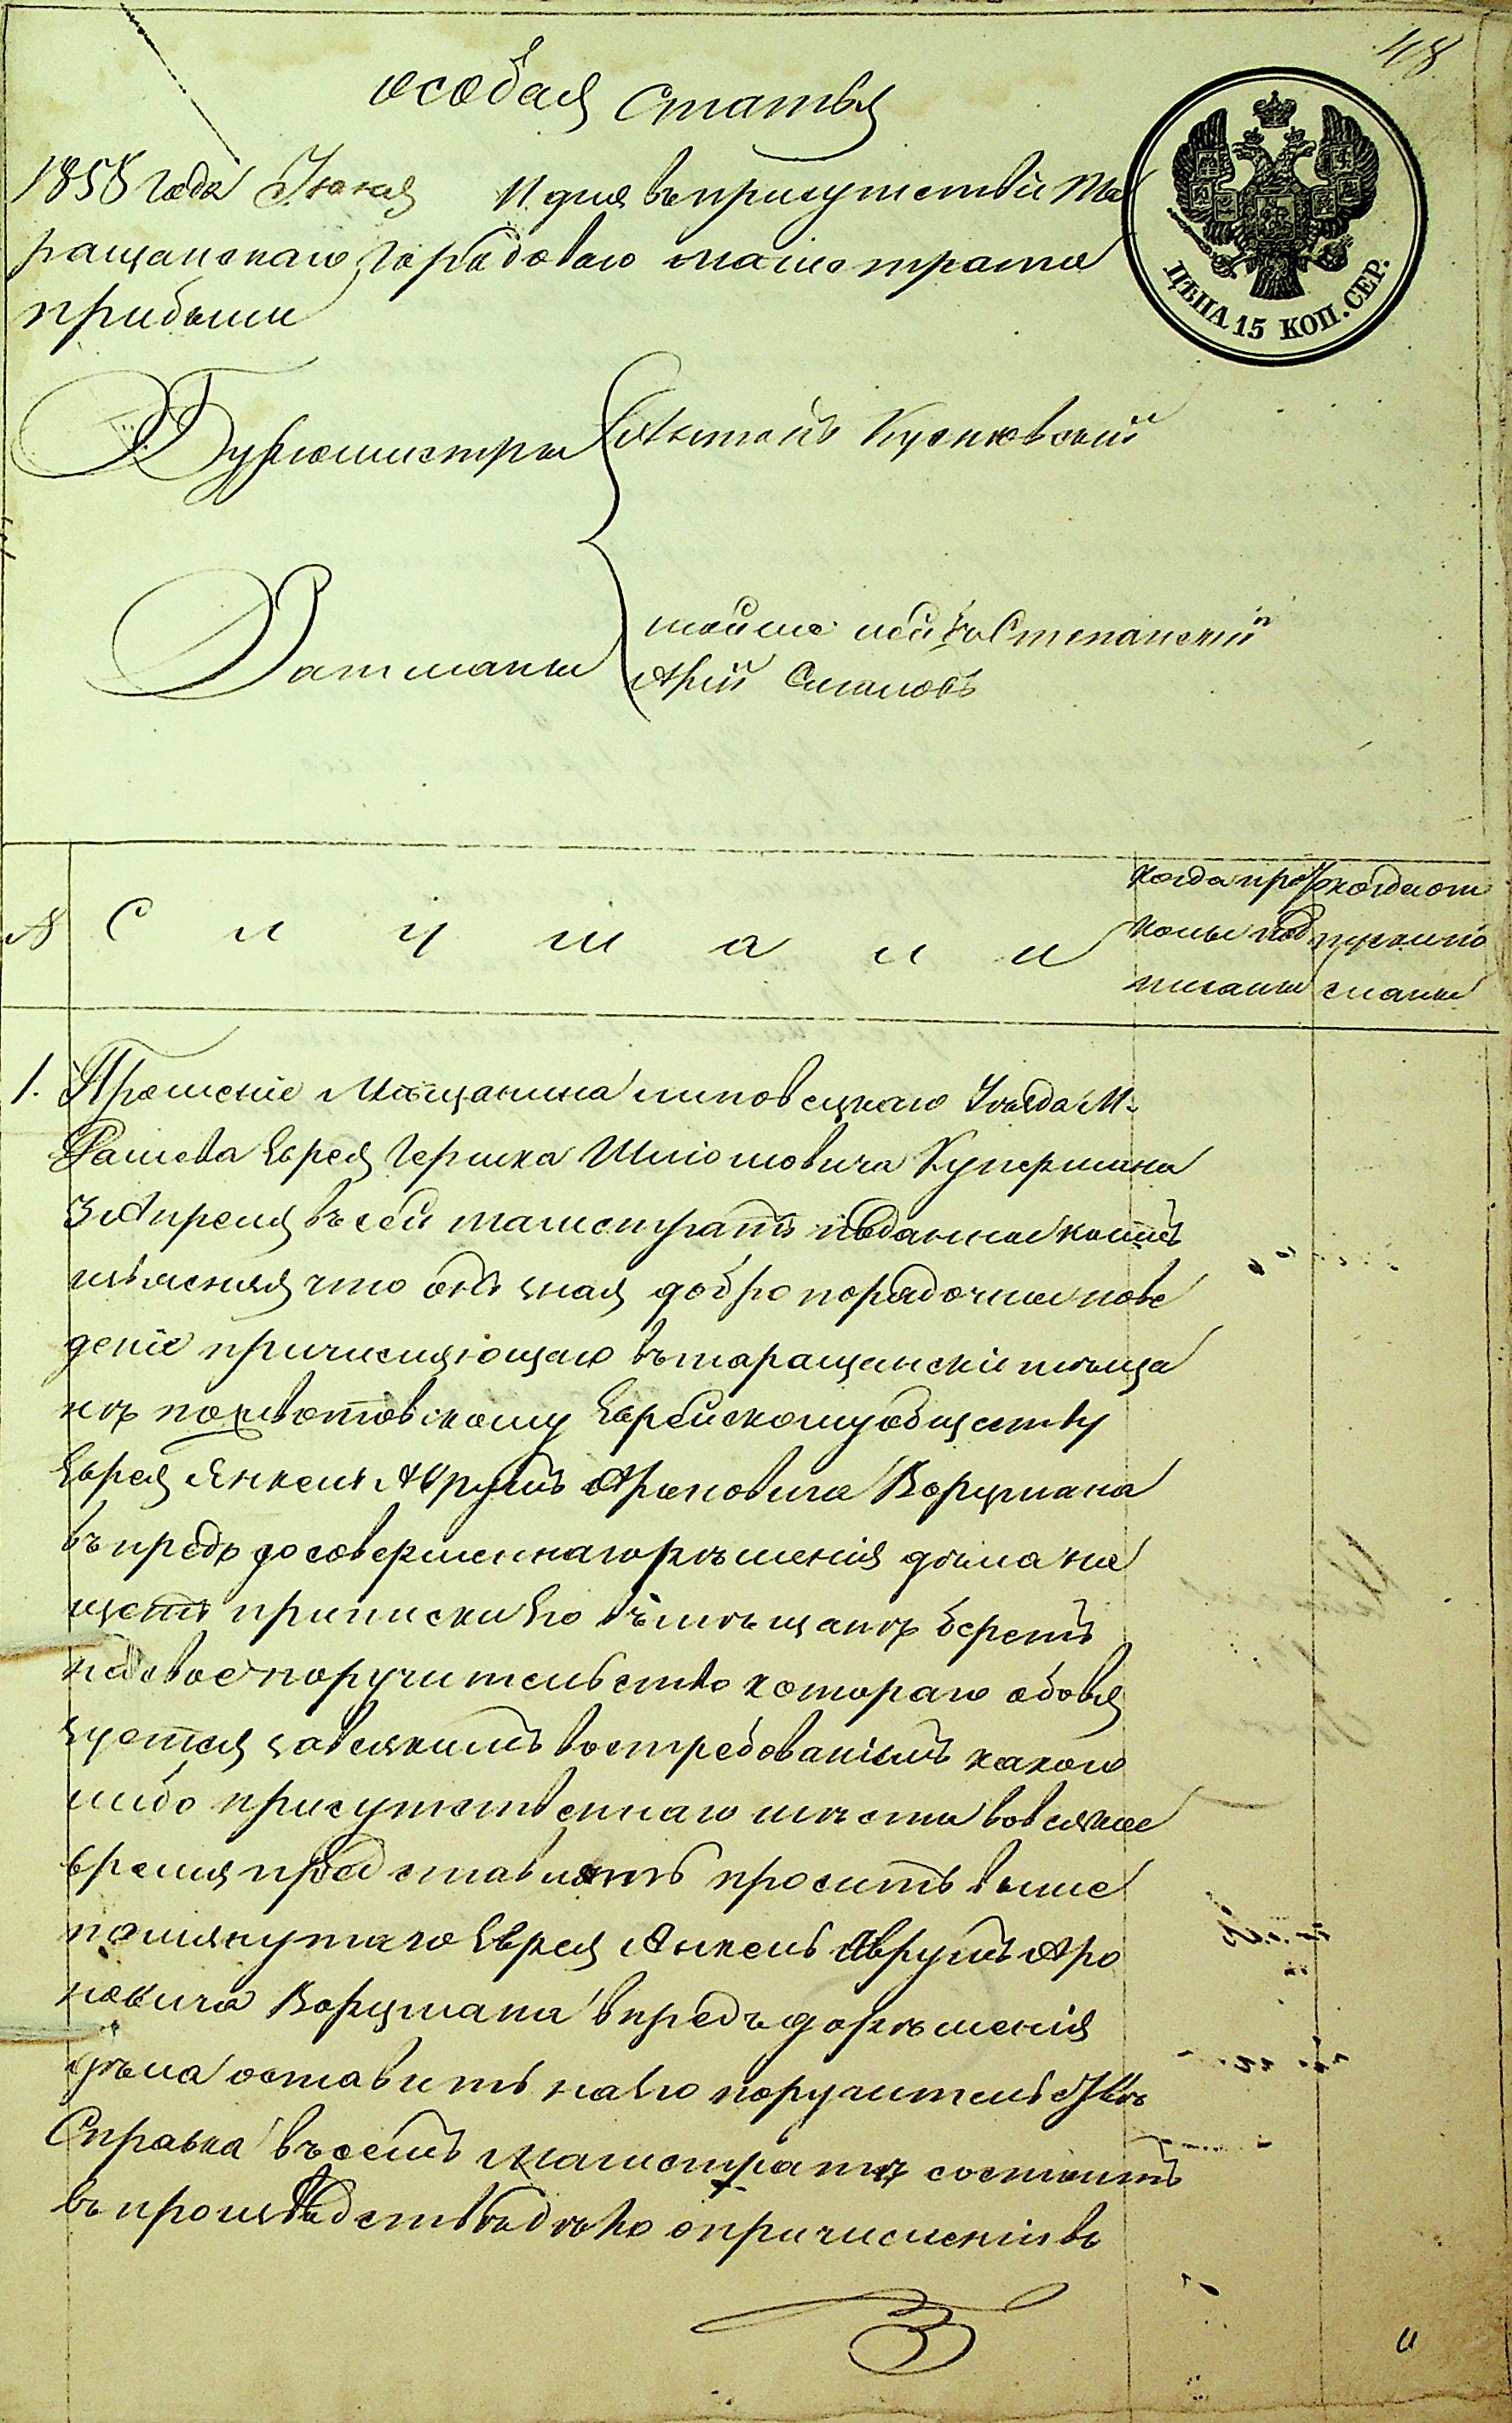 48
Особая Статья
1858 года Июня 11 дня въ присутствіи Та
ращанскаго Городоваго магистрата
прибыли
ЦѢНА 15 КОП. СЕР.
Бургомистры
Антонъ
Ратманы
Степанскій
Арій
№ Слушали
Когда прото
колы под
писаны
Когда от
пуски по
сланы
1. Прошеніе Мѣщанина липовецкаго Уѣзда М.
Рашева Еврея Гершка Шліомовича Купермана
3 Апреля въ сей магистратъ поданное коимъ
изъясняя что онъ зная добро порадочное пове
деніе причисляющаго въ таращанскіе мѣща
нѣ по Еврейскому обществу
Еврея Янкель Аврумъ Ароновича Ворцмана
въ предь до совершеннаго рѣшенія дѣла на
щетъ приписки Его въ мѣщанѣ беретъ
на свое поручительство котораго обовя
зуется за всякимъ востребованіемъ какого
либо присутственнаго мѣста вовсякое
время представлять проситъ выше
помянутаго Еврея Янкель Аврумъ Аро
новича Ворцмана впредъ дорѣшенія
дѣла оставить на Его поручительствѣ
Справка въ семъ Магистратѣ состоитъ
въ производствѣ дѣло о причисленіи въ